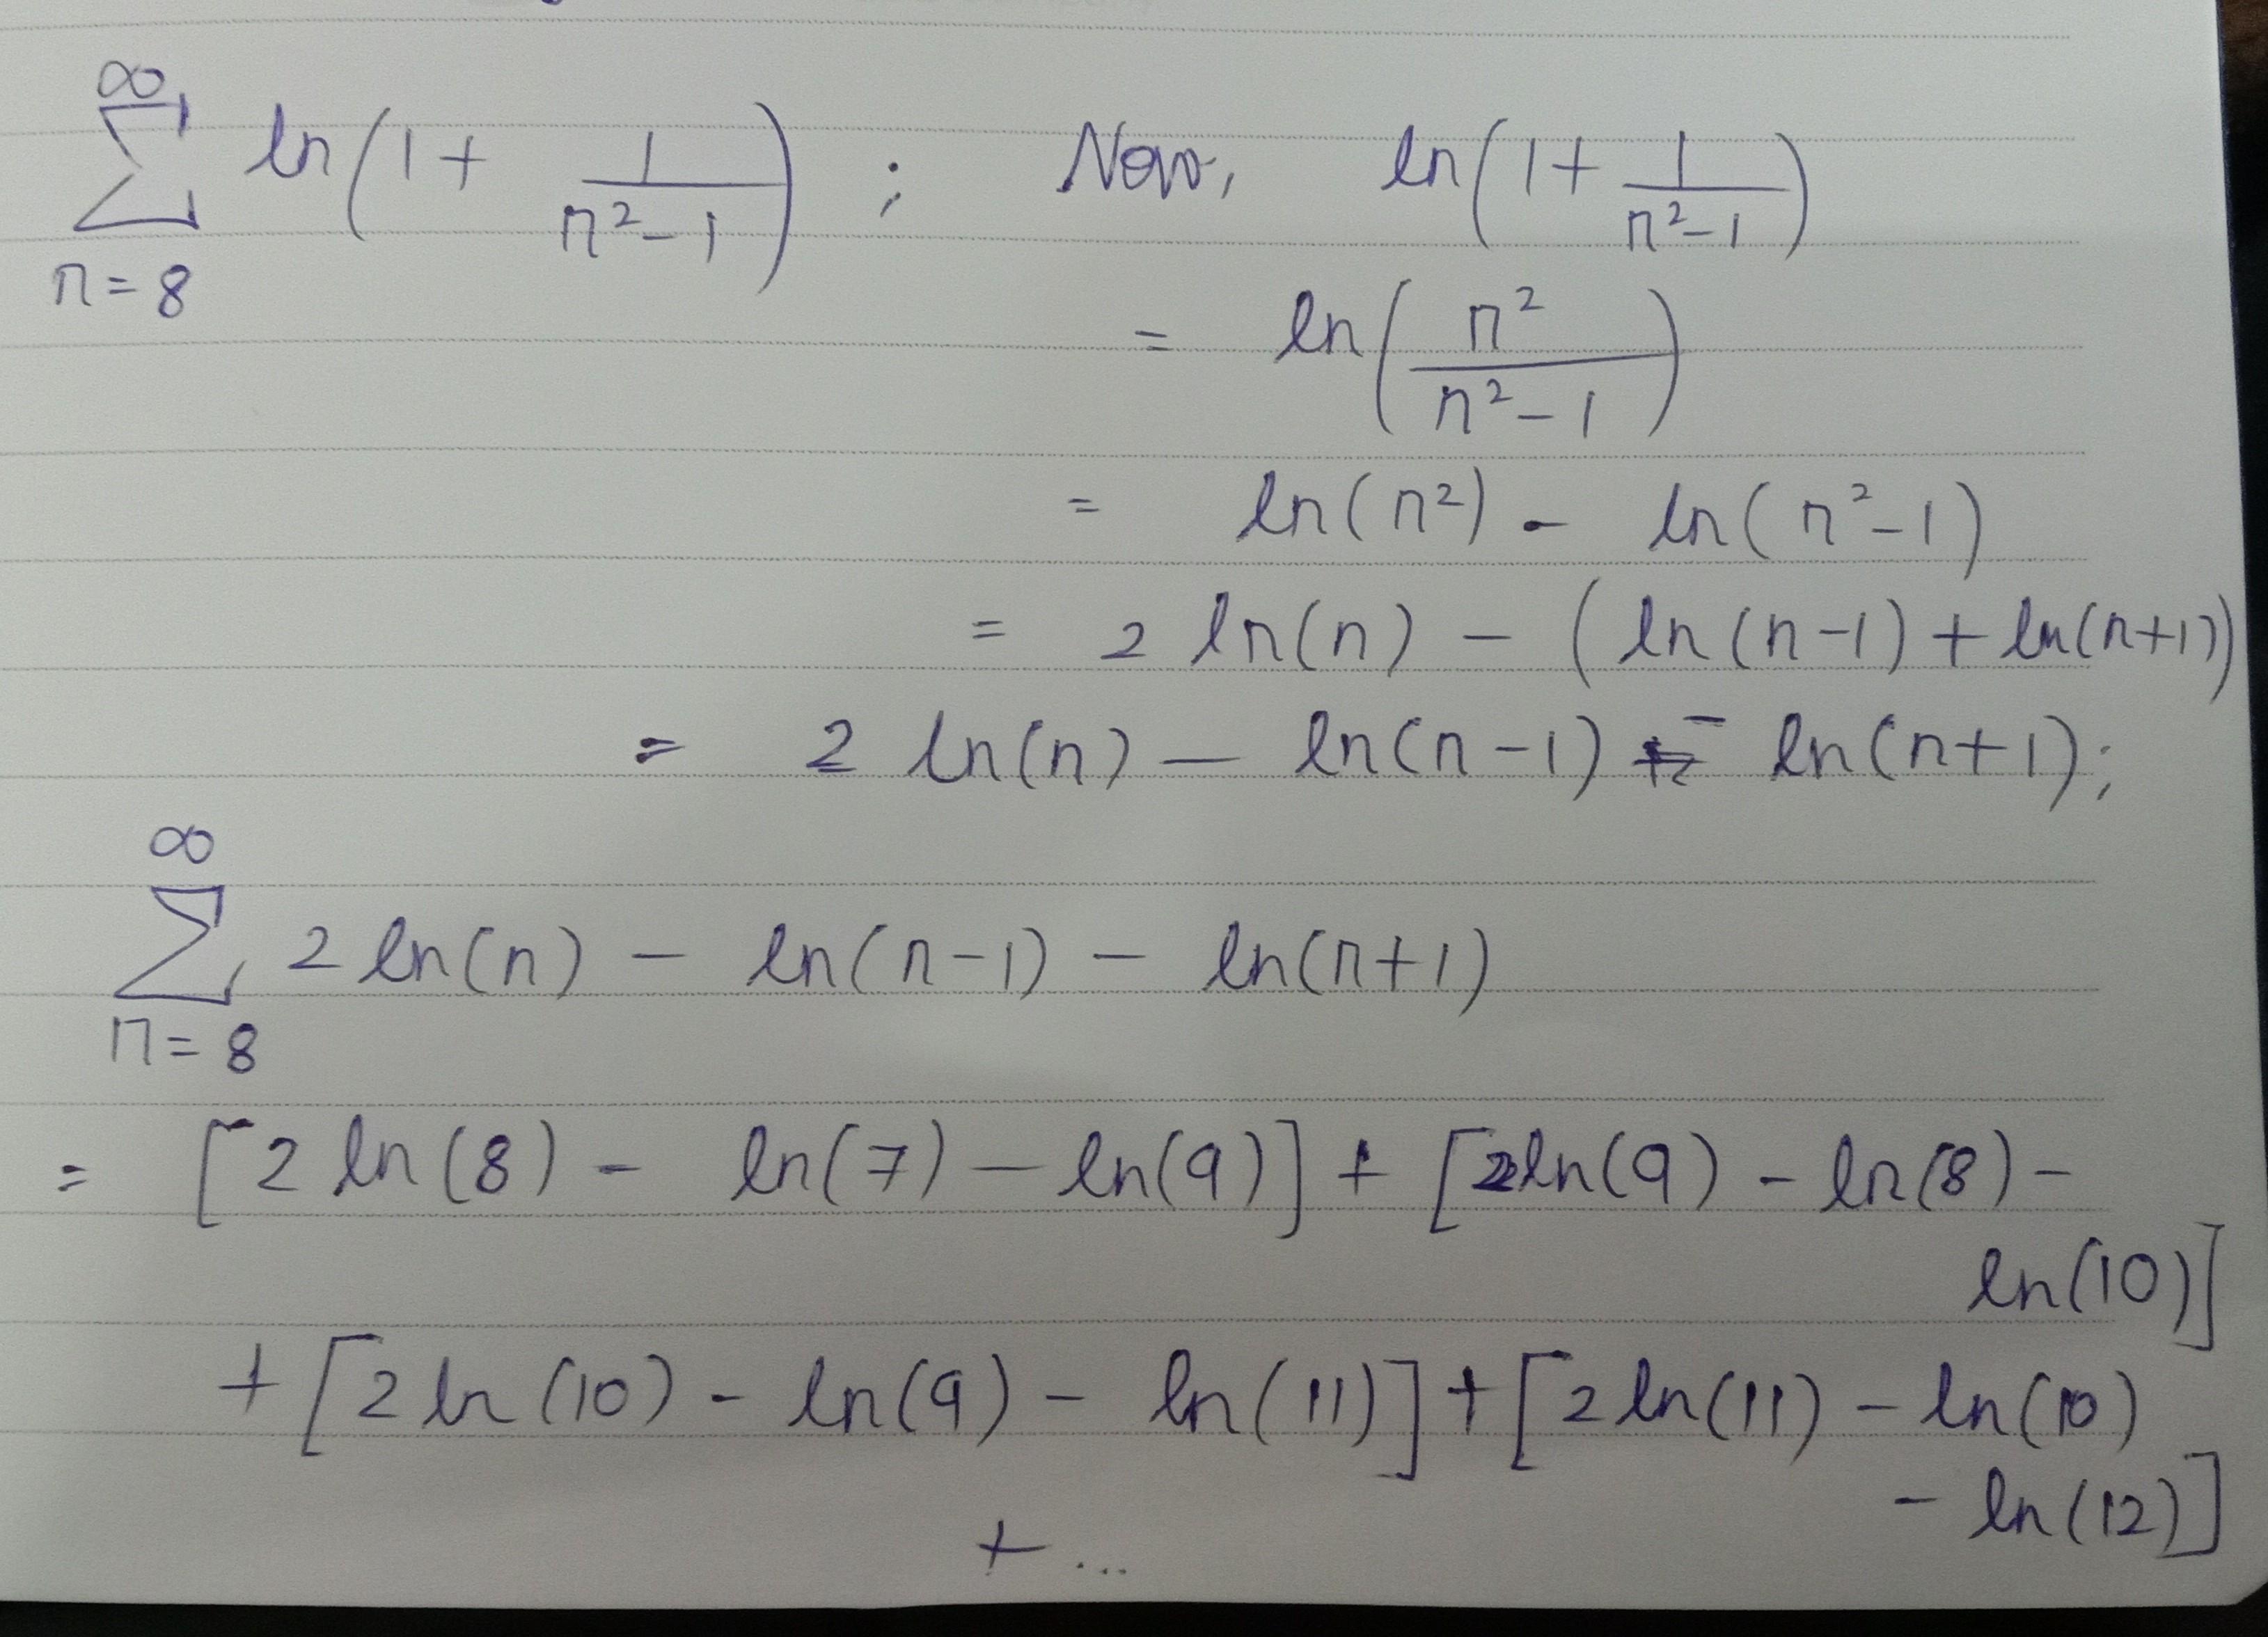 ∞
∑ ln(1 + 1/(n²-1)) ; Now, ln(1 + 1/(n²-1))
n=8
= ln(n²/(n²-1))
= ln(n²) - ln(n²-1)
= 2 ln(n) - (ln(n-1) + ln(n+1))
= 2 ln(n) - ln(n-1) - ln(n+1);
∞
∑ 2 ln(n) - ln(n-1) - ln(n+1)
n=8
= [2 ln(8) - ln(7) - ln(9)] + [2ln(9) - ln(8) -
ln(10)]
+ [2 ln(10) - ln(9) - ln(11)] + [2 ln(11) - ln(10)
- ln(12)]
+ ...